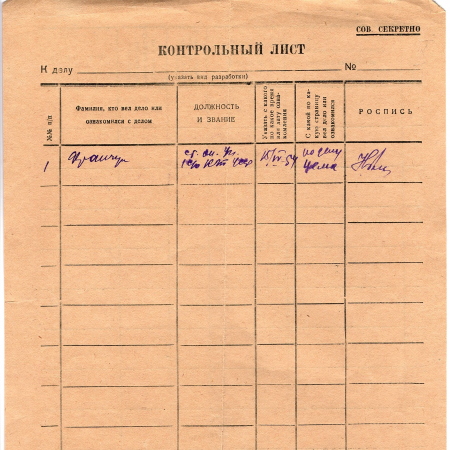 СОВ. СЕКРЕТНО
КОНТРОЛЬНЫЙ ЛИСТ
К делу №
(указать вид разработки)
№№ п/п
Фамилия, кто вел дело или
ознакомился с делом
ДОЛЖНОСТЬ
И ЗВАНИЕ
Указать с какого
по какое время
или дату озна-
комления
С какой по ка-
кую страницу
вел дело или
ознакомился
РОСПИСЬ
1